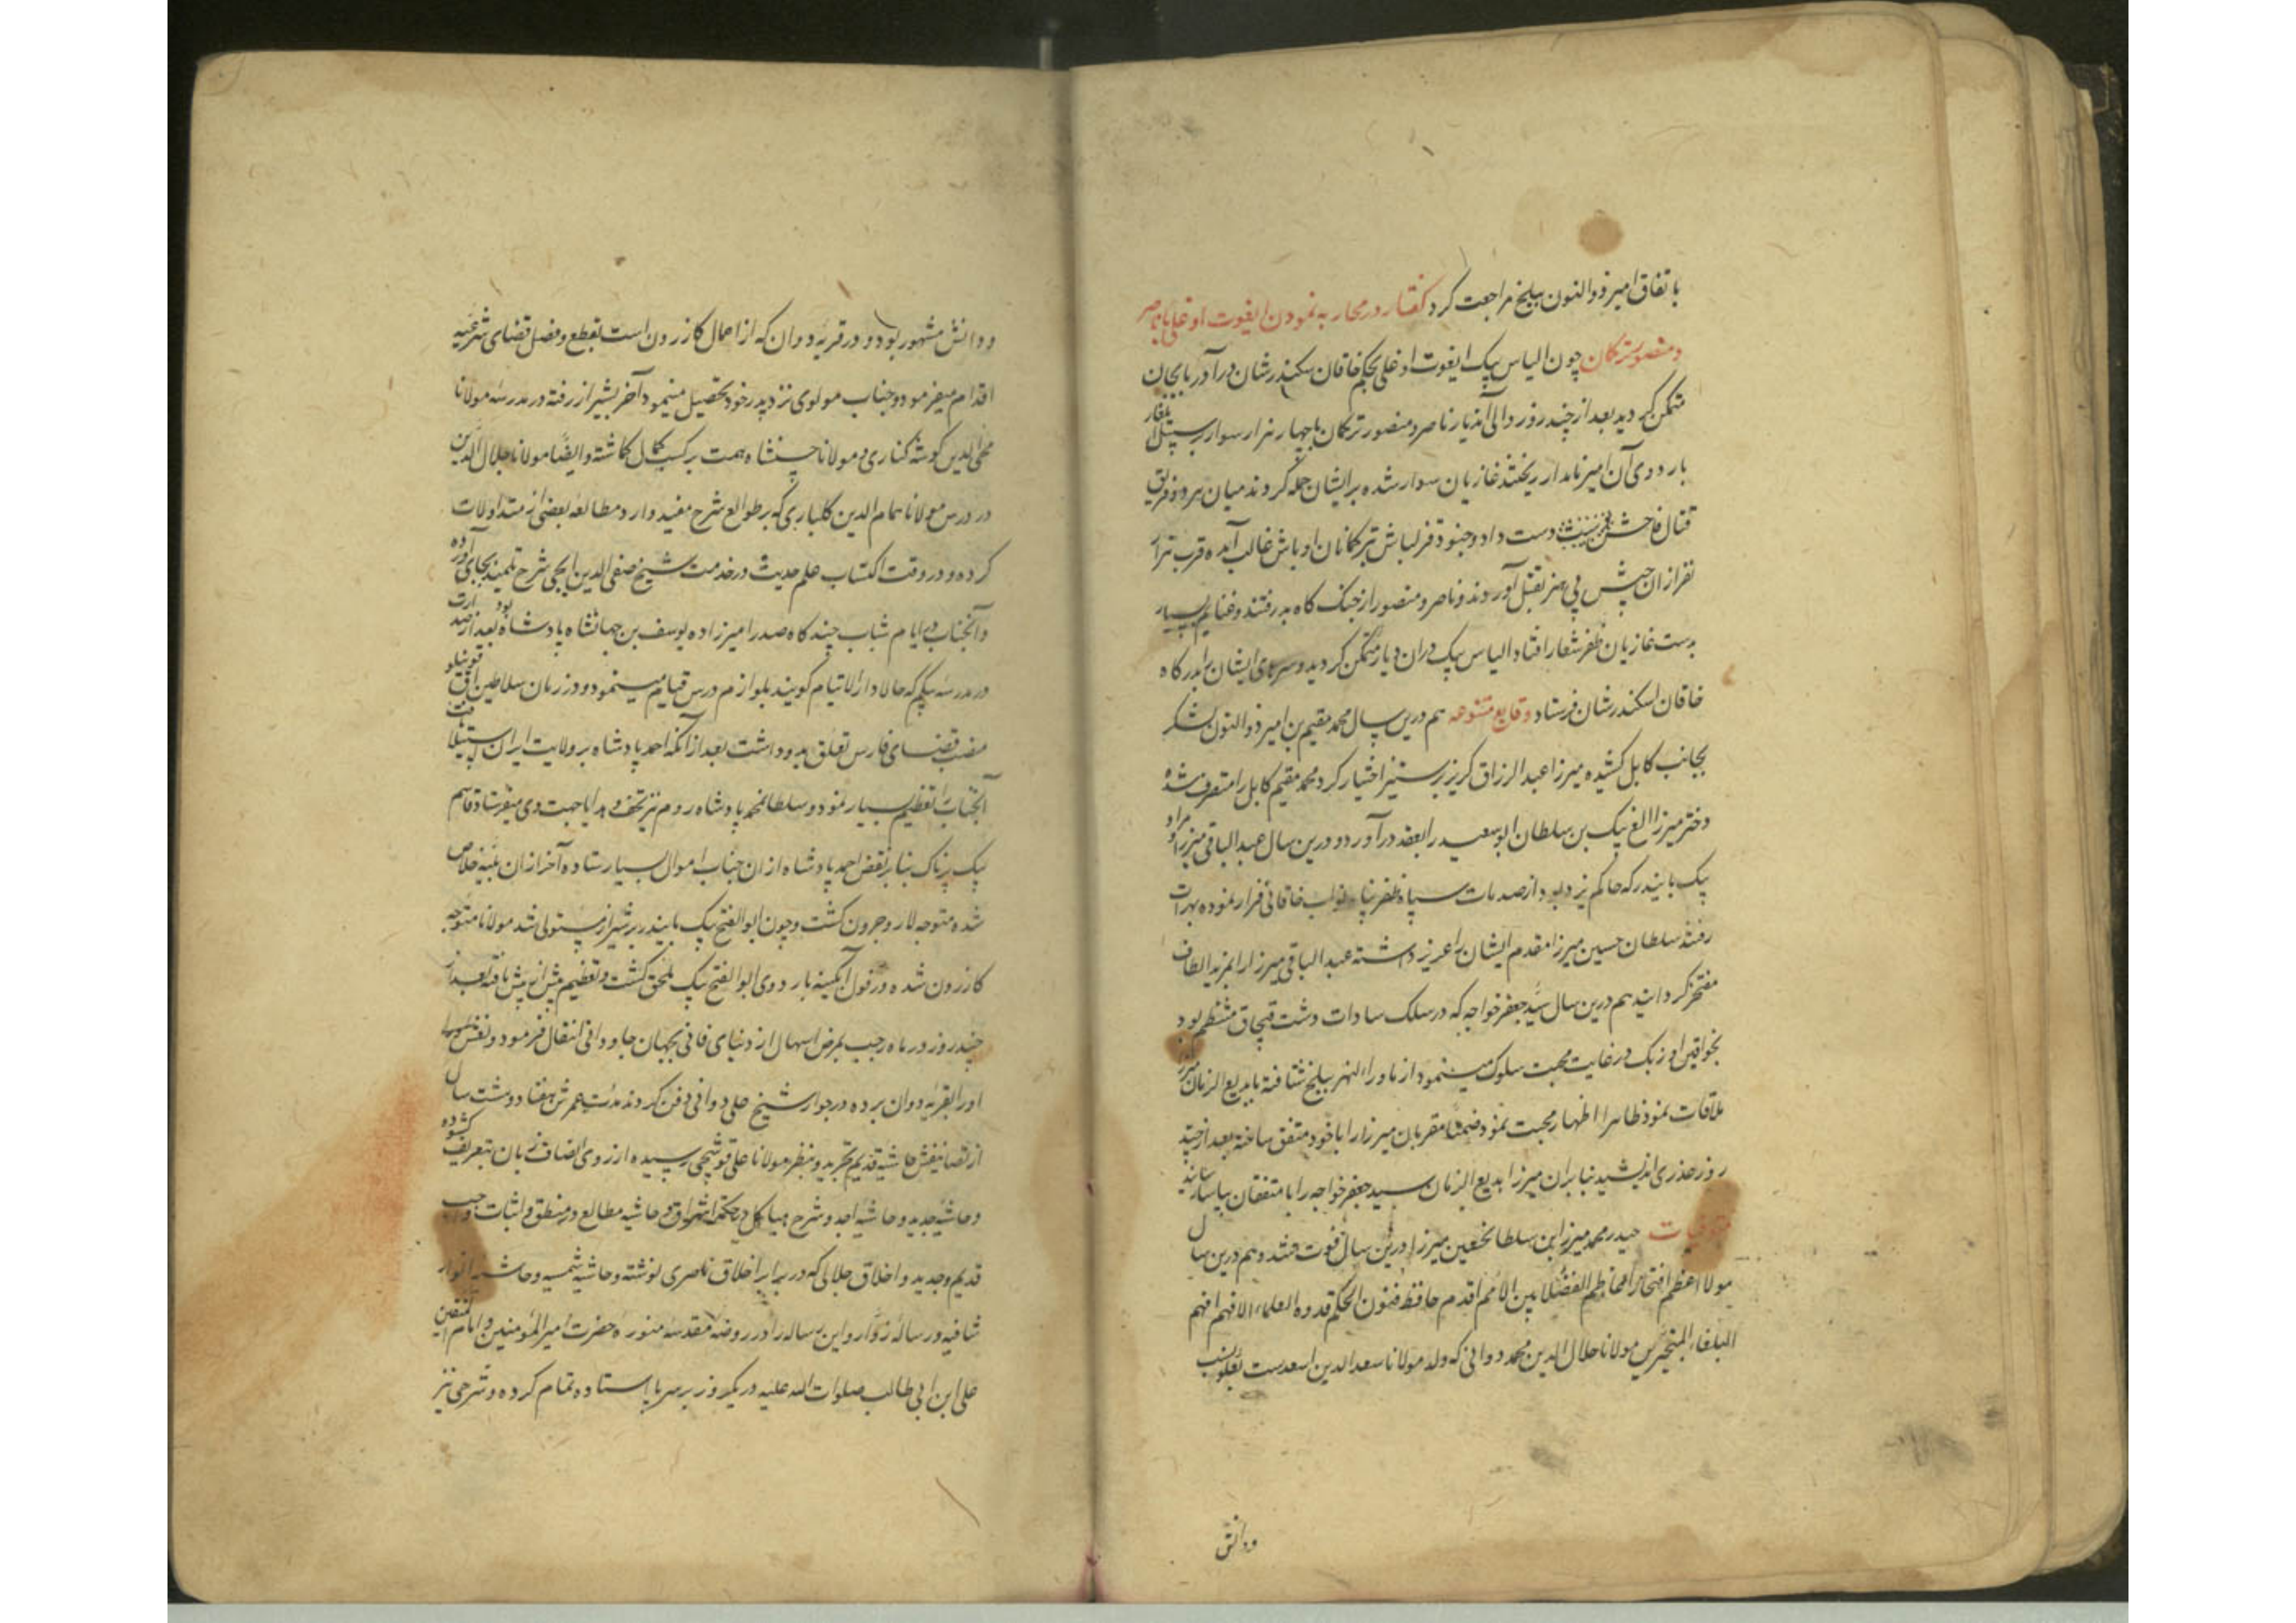 باتفاق امیر ذوالنون ببلخ مراجعت کرد گفتار در محاربه نمودن ایغوت اوغلی با ناصر
و منصور ترکمان چون الیاس بیک ایغوت اوغلی بحکم خاقان سکندرشان در آذربایجان
متمکن گردید بعد از چند روز والی آندیار ناصر و منصور ترکمان با چهار هزار سوار بر سبیل ایلغار
باردوی آن امیر نامدار ریختند غازیان سوار شده برایشان حمله کردند میان هر دو فریق
قتال فاحش دست داد و جنود قزلباش بر ترکمانان اوباش غالب آمده قرب هزار
نفر از ان جیش بی هنر بقتل آوردند و ناصر و منصور از جنک کاه بدر رفتند و غنایم بسیار
بدست غازیان ظفر شعار افتاد الیاس بیک دران دیار متمکن گردید و سرهای ایشان را بدرکاه
خاقان اسکندرشان فرستاد وقایع متنوعه هم درین سال محمد مقیم بن امیر ذوالنون لشکر
بجانب کابل کشیده میرزا عبدالرزاق کریز بر ستیز اختیار کرد محمد مقیم کابل را متصرف شده
دختر میرزا الغ بیک بن سلطان ابو سعید را بعقد درآورد و درین سال عبدالباقی میرزا و مراد
بیک بایندر که حاکم یزد بود از صدمات سپاه ظفر پناه نواب خاقانی فرار نموده بهرات
رفتند سلطان حسین میرزا مقدم ایشان را عزیز داشته عبدالباقی میرزا را بمزید الطاف
مفتخر گردانید هم درین سال سید جعفر خواجه که در سلک سادات دشت قبچاق منتظم بود
بخواقین اوزبک در غایت محبت سلوک مینمود از ماوراءالنهر ببلخ شتافته با بدیع الزمان میرزا
ملاقات نمود ظاهرا اظهار محبت نمود ضمنا مقربان میرزا را با خود متفق ساخته بعد از چند
روز غدری اندیشید بنابران میرزا بدیع الزمان سید جعفر خواجه را با متفقان بیاسا رسانید
متوفیات حیدر محمد میرزا بن سلطانحسین میرزا درین سال فوت شد و هم درین سال
مولا اعظم افتخار اعاظم الفضلا بین الامم اقدم حافظ فنون الحکم قدوه العلماء الافهم افهم
البلغاء المتبحرین مولانا جلال الدین محمد دوانی که ولد مولانا سعدالدین اسعدست بعلو نسب
ودانش
ودانش مشهور بود و در قریه دوان که از اعمال کازرون است بقطع و فصل قضای شرعیه
اقدام میفرمود و جناب مولوی نزد پدر خود تحصیل مینمود آخر بشیراز رفته در مدرسه مولانا
محی الدین کوشه کناری و مولانا حسنشاه همت بر کسب کمال کماشته و ایضا مولانا جلال الدین
در درس مولانا همام الدین کلباری که بر طوالع شرح مفید دارد مطالعه بعضی از متداولات
کرده و در وقت اکتساب علم حدیث در خدمت شیخ صفی الدین ایجی شرح تلمیذ بجای آورده
و آنجناب در ایام شباب چند کاه صدر امیرزاده یوسف بن جهانشاه پادشاه بود بعد از صدارت
در مدرسه بیکم که حالا دارالایتام کویند بلوازم درس قیام مینمود و در زمان سلاطین آق قوینلو
منصب قضای فارس تعلق بدو داشت بعد از آنکه احمد پادشاه بر ولایت ایران استیلا یافت
آنجناب را تعظیم بسیار نمود و سلطانمحمد پادشاه روم نیز تحف و هدایا جهت وی میفرستاد قاسم
بیک پرناک بنابر نقض احمد پادشاه از ان جناب اموال بسیار ستاده آخر از ان بلیه خلاص
شده متوجه لار و جرون کشت و چون ابوالفتح بیک بایندر بر شیراز مستولی شد مولانا متوجه
کازرون شده در قول آبکینه باردوی ابوالفتح بیک ملحق کشت و تعظیم بیش از بیش یافته بعد از
چند روز در ماه رجب بمرض اسهال از دنیای فانی بجهان جاودانی انتقال فرمود و نعش
اورا بقریه دوان برده در جوار شیخ علی دوانی دفن کردند مدت عمرش هفتاد و هشت سال
از تصانیفش حاشیه قدیم تجرید و بنظر مولانا علی قوشچی رسیده از روی انصاف زبان بتعریف کشوده
و حاشیه جدید و حاشیه اجد و شرح هیاکل در حکمه اشراق و حاشیه مطالع در منطق و اثبات واجب
قدیم و جدید و اخلاق جلالی که در برابر اخلاق ناصری نوشته و حاشیه شمسیه و حاشیه انوار
شافیه و رساله زورا و این رساله را در روضه مقدسه منوره حضرت امیرالمؤمنین و امام المتقین
علی ابن ابی طالب صلوات الله علیه در یکروز بر سر پا استاده تمام کرده و شرحی نیز